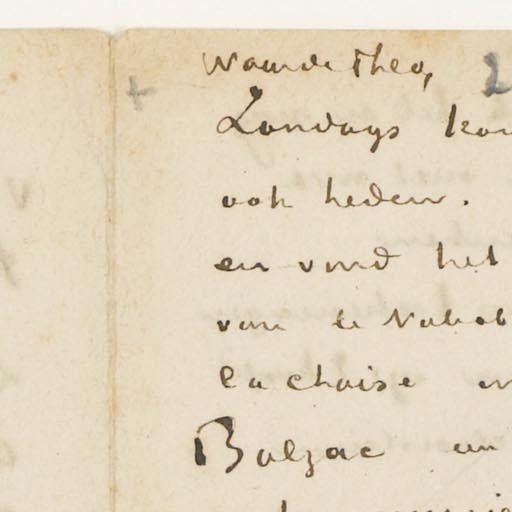 Waarde Theo,
Zondags kon
ook heden.
en vond het
van le Nabab
la chaise en
Balzac en